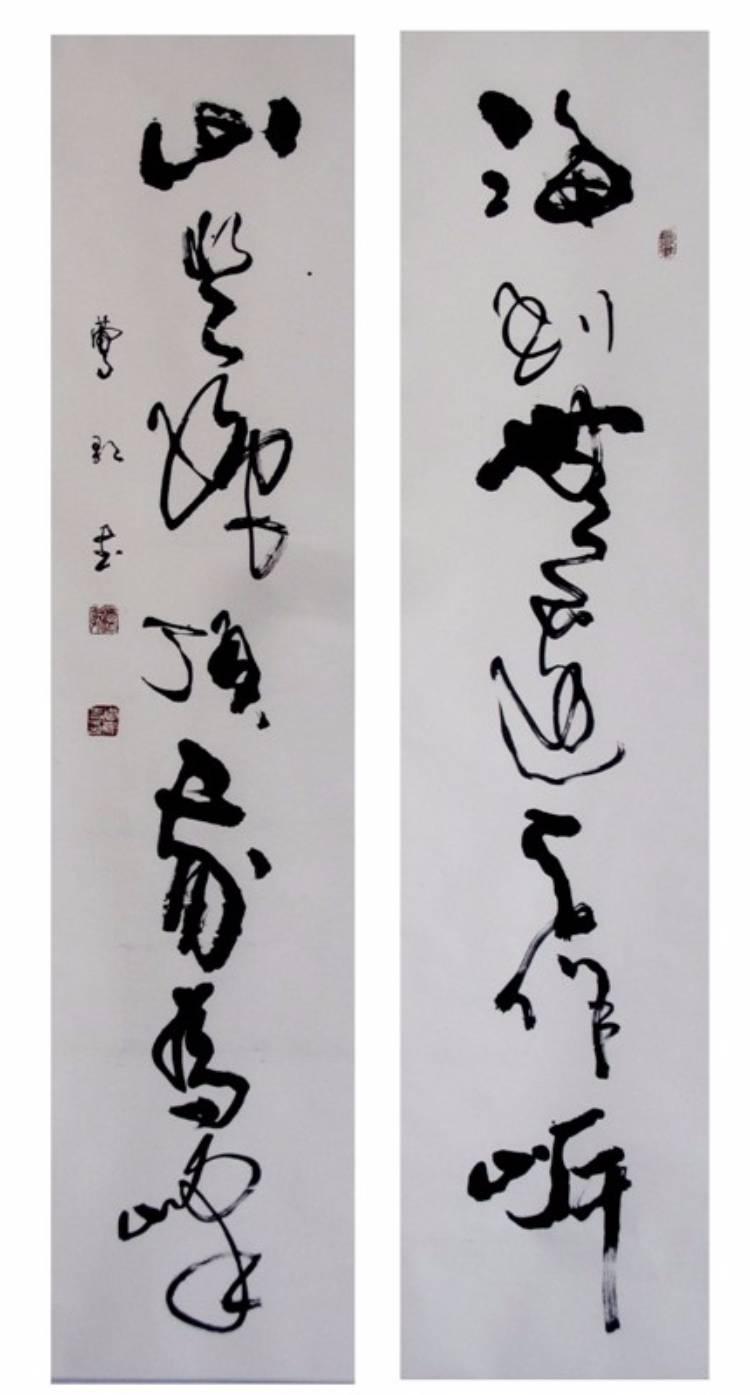 海到無邊天作岸
山登絕頂我為峰
鶯 書